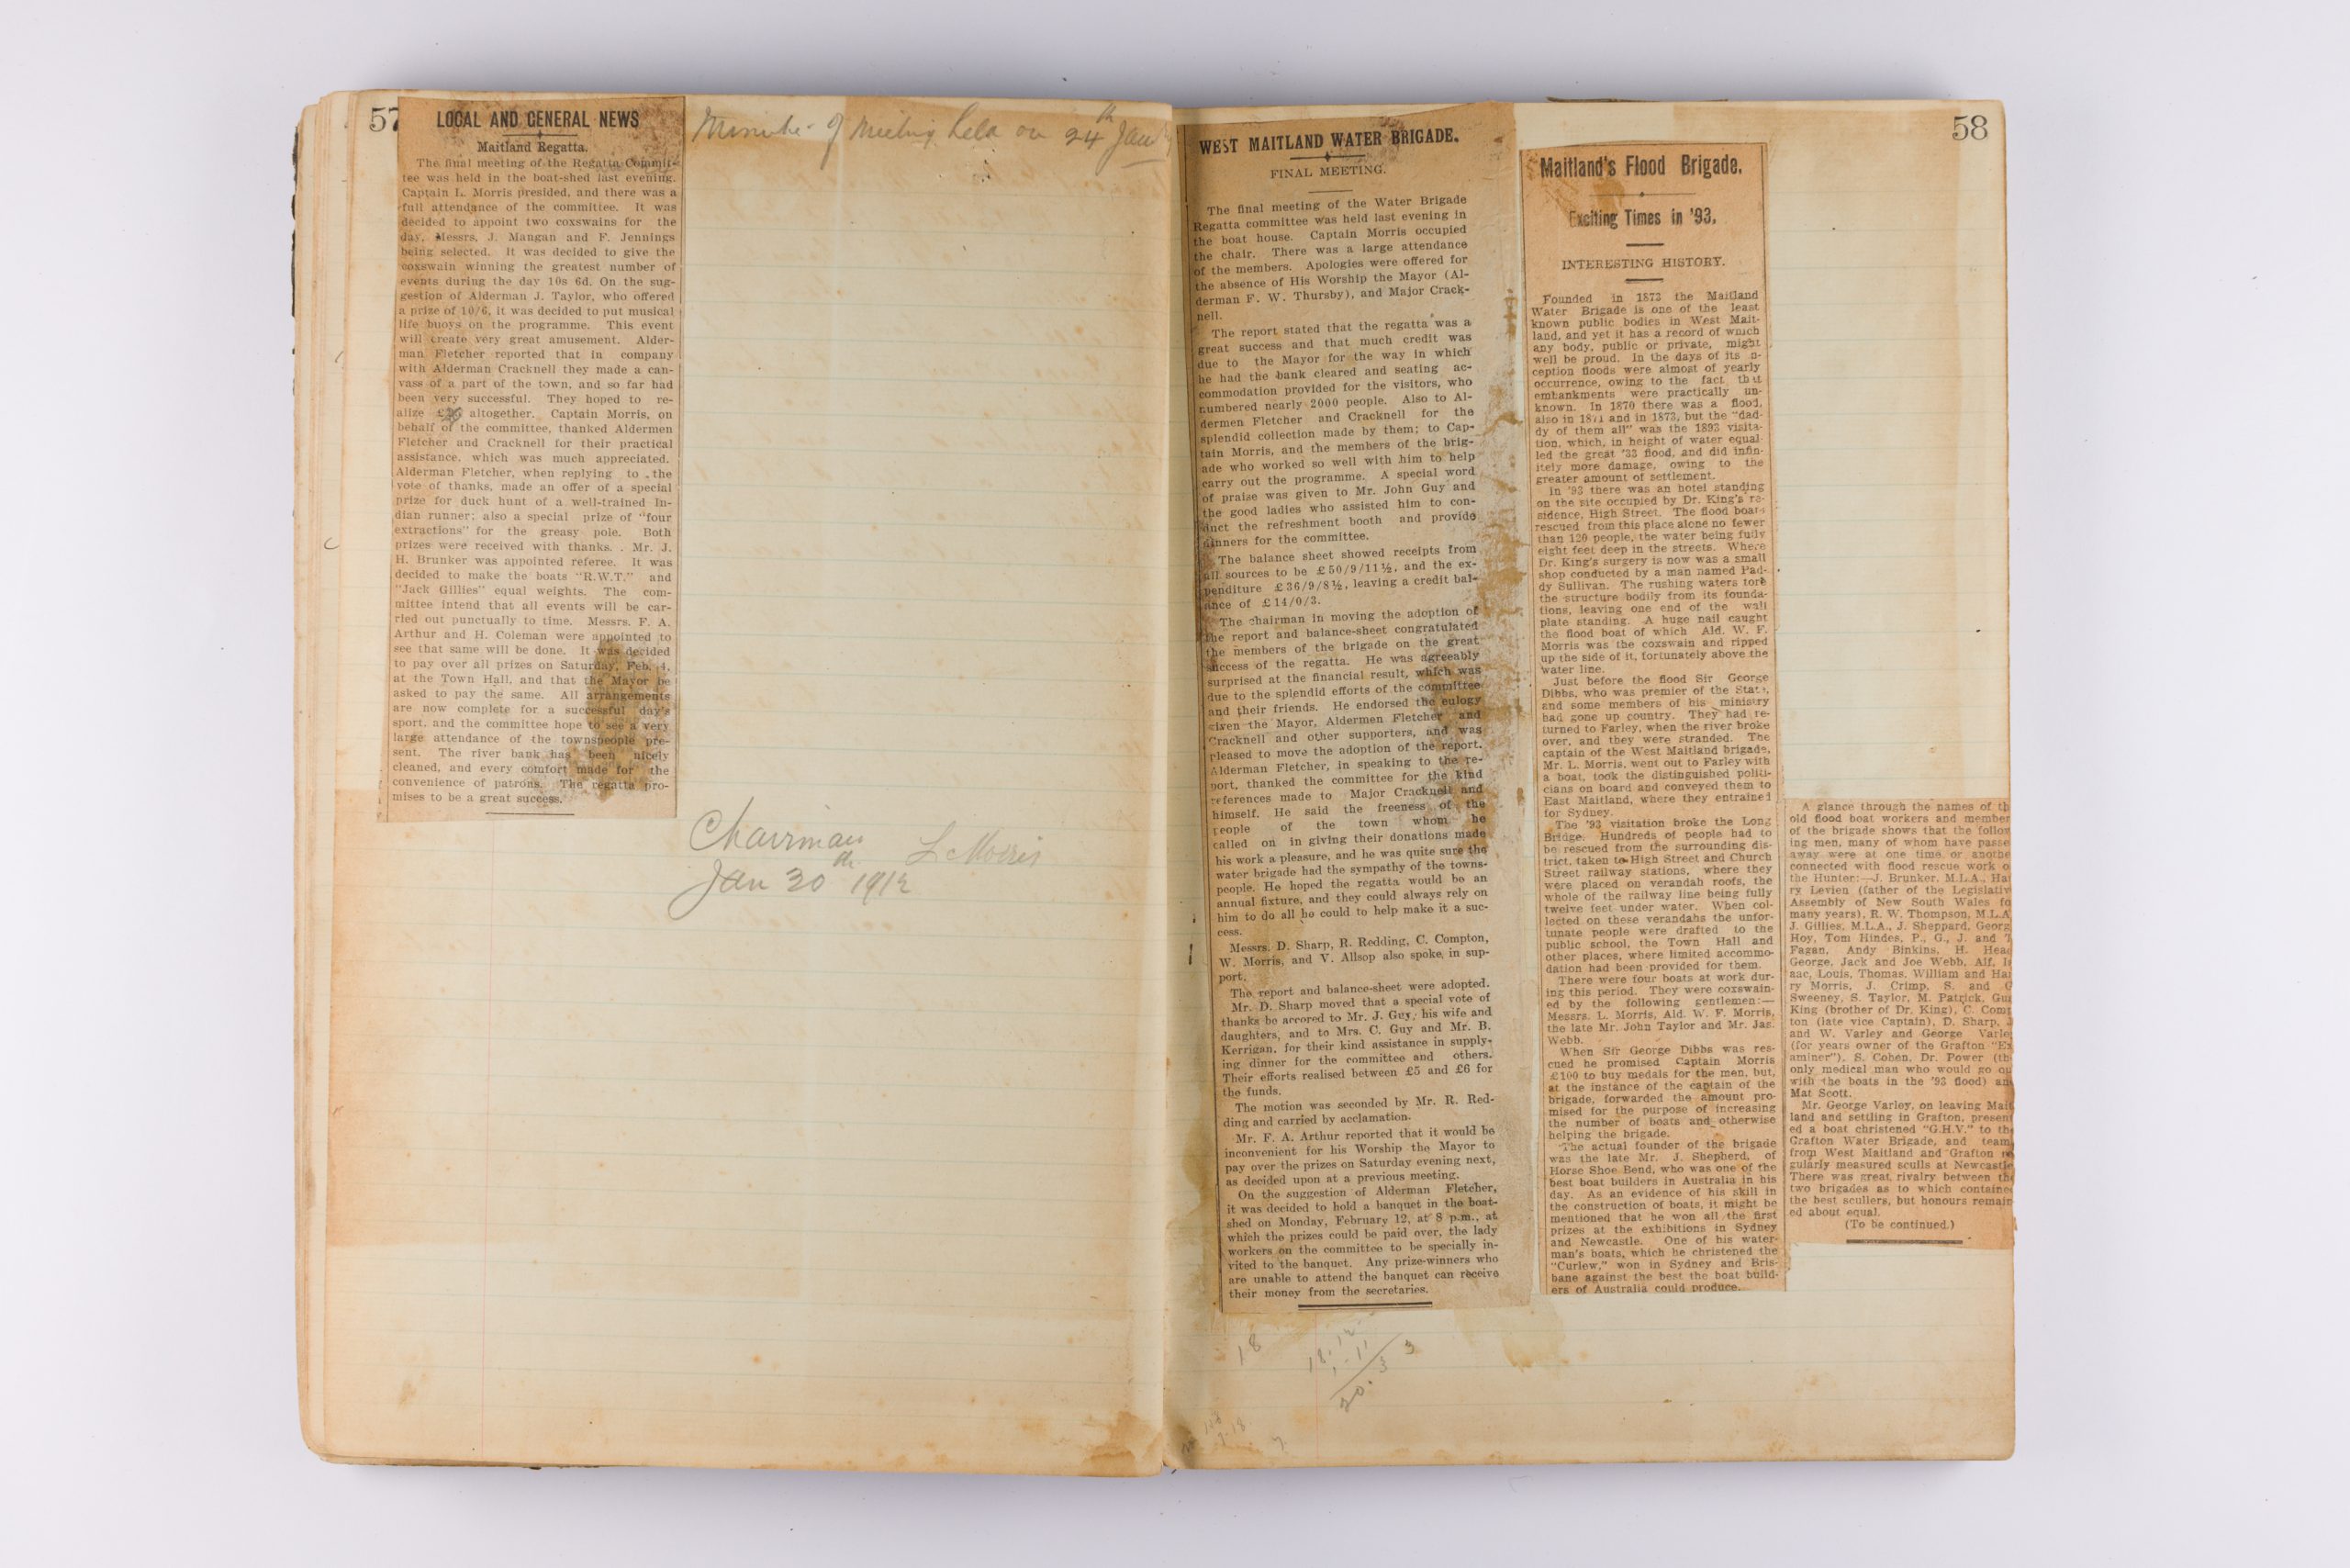 57
LOCAL AND GENERAL NEWS
Maitland Regatta.
The final meeting of the Regatta Commit-
tee was held in the boat-shed last evening.
Captain L. Morris presided, and there was a
full attendance of the committee. It was
decided to appoint two coxswains for the
day, Messrs, J. Mangan and F. Jennings
being selected. It was decided to give the
coxswain winning the greatest number of
events during the day 10s 6d. On the sug-
gestion of Alderman J. Taylor, who offered
a prize of 10/6, it was decided to put musical
life buoys on the programme. This event
will create very great amusement. Alder-
man Fletcher reported that in company
with Alderman Cracknell they made a can-
vass of a part of the town, and so far had
been very successful. They hoped to re-
alize altogether. Captain Morris, on
behalf of the committee, thanked Aldermen
Fletcher and Cracknell for their practical
assistance, which was much appreciated.
Alderman Fletcher, when replying to the
vote of thanks, made an offer of a special
prize for duck hunt of a well-trained In-
dian runner; also a special prize of "four
extractions" for the greasy pole. Both
prizes were received with thanks. Mr. J.
H. Brunker was appointed referee. It was
decided to make the boats "R.W.T." and
"Jack Gillies" equal weights. The com-
mittee intend that all events will be car-
ried out punctually to time. Messrs. F. A.
Arthur and H. Coleman were appointed to
see that same will be done. It was decided
to pay over all prizes on Saturday, Feb. 4,
at the Town Hall, and that the Mayor be
asked to pay the same. All arrangements
are now complete for a successful day's
sport, and the committee hope to see a very
large attendance of the townspeople pre-
sent. The river bank has been nicely
cleaned, and every comfort made for the
convenience of patrons. The regatta pro-
mises to be a great success.
Minutes of Meeting held on 24th Jany
Chairman L Morris
Jan 30th 1912
WEST MAITLAND WATER BRIGADE.
FINAL MEETING.
The final meeting of the Water Brigade
Regatta committee was held last evening in
the boat house. Captain Morris occupied
the chair. There was a large attendance
of the members. Apologies were offered for
the absence of His Worship the Mayor (Al-
derman F. W. Thursby), and Major Crack-
nell.
The report stated that the regatta was a
great success and that much credit was
due to the Mayor for the way in which
he had the bank cleared and seating ac-
commodation provided for the visitors, who
numbered nearly 2000 people. Also to Al-
dermen Fletcher and Cracknell for the
splendid collection made by them; to Cap-
tain Morris, and the members of the brig-
ade who worked so well with him to help
carry out the programme. A special word
of praise was given to Mr. John Guy and
the good ladies who assisted him to con-
duct the refreshment booth and provide
dinners for the committee.
The balance sheet showed receipts from
all sources to be £50/9/11½, and the ex-
penditure £36/9/8½, leaving a credit bal-
ance of £14/0/3.
The chairman in moving the adoption of
the report and balance-sheet congratulated
the members of the brigade on the great
success of the regatta. He was agreeably
surprised at the financial result, which was
due to the splendid efforts of the committee
and their friends. He endorsed the eulogy
given the Mayor, Aldermen Fletcher and
Cracknell and other supporters, and was
pleased to move the adoption of the report.
Alderman Fletcher, in speaking to the re-
port, thanked the committee for the kind
references made to Major Cracknell and
himself. He said the freeness of the
people of the town whom he
called on in giving their donations made
his work a pleasure, and he was quite sure the
water brigade had the sympathy of the towns-
people. He hoped the regatta would be an
annual fixture, and they could always rely on
him to do all he could to help make it a suc-
cess.
Messrs. D. Sharp, R. Redding, C. Compton,
W. Morris, and V. Allsop also spoke in sup-
port.
The report and balance-sheet were adopted.
Mr. D. Sharp moved that a special vote of
thanks be accored to Mr. J. Guy, his wife and
daughters, and to Mrs. C. Guy and Mr. B.
Kerrigan, for their kind assistance in supply-
ing dinner for the committee and others.
Their efforts realised between £5 and £6 for
the funds.
The motion was seconded by Mr. R. Red-
ding and carried by acclamation.
Mr. F. A. Arthur reported that it would be
inconvenient for his Worship the Mayor to
pay over the prizes on Saturday evening next,
as decided upon at a previous meeting.
On the suggestion of Alderman Fletcher,
it was decided to hold a banquet in the boat-
shed on Monday, February 12, at 8 p.m., at
which the prizes could be paid over, the lady
workers on the committee to be specially in-
vited to the banquet. Any prize-winners who
are unable to attend the banquet can receive
their money from the secretaries.
18
58
Maitland's Flood Brigade.
Exciting Times in '93.
INTERESTING HISTORY.
Founded in 1873 the Maitland
Water Brigade is one of the least
known public bodies in West Mait-
land, and yet it has a record of which
any body, public or private, might
well be proud. In the days of its n-
ception floods were almost of yearly
occurrence, owing to the fact that
embankments were practically un-
known. In 1870 there was a flood,
also in 1871 and in 1873, but the "dad-
dy of them all" was the 1893 visita-
tion, which, in height of water equal-
led the great '33 flood, and did infin-
itely more damage, owing to the
greater amount of settlement.
In '93 there was an hotel standing
on the site occupied by Dr. King's re-
sidence, High Street. The flood boats
rescued from this place alone no fewer
than 120 people, the water being fully
eight feet deep in the streets. Where
Dr. King's surgery is now was a small
shop conducted by a man named Pad-
dy Sullivan. The rushing waters tore
the structure bodily from its founda-
tions, leaving one end of the wall
plate standing. A huge nail caught
the flood boat of which Ald. W. F.
Morris was the coxswain and ripped
up the side of it, fortunately above the
water line.
Just before the flood Sir George
Dibbs, who was premier of the State,
and some members of his ministry
had gone up country. They had re-
turned to Farley, when the river broke
over, and they were stranded. The
captain of the West Maitland brigade,
Mr. L. Morris, went out to Farley with
a boat, took the distinguished politi-
cians on board and conveyed them to
East Maitland, where they entrained
for Sydney.
The '93 visitation broke the Long
Bridge. Hundreds of people had to
be rescued from the surrounding dis-
trict, taken to High Street and Church
Street railway stations, where they
were placed on verandah roofs, the
whole of the railway line being fully
twelve feet under water. When col-
lected on these verandahs the unfor-
tunate people were drafted to the
public school, the Town Hall and
other places, where limited accommo-
dation had been provided for them.
There were four boats at work dur-
ing this period. They were coxswain-
ed by the following gentlemen:—
Messrs. L. Morris, Ald. W. F. Morris,
the late Mr. John Taylor and Mr. Jas.
Webb.
When Sir George Dibbs was res-
cued he promised Captain Morris
£100 to buy medals for the men, but,
at the instance of the captain of the
brigade, forwarded the amount pro-
mised for the purpose of increasing
the number of boats and otherwise
helping the brigade.
The actual founder of the brigade
was the late Mr. J. Shepherd, of
Horse Shoe Bend, who was one of the
best boat builders in Australia in his
day. As an evidence of his skill in
the construction of boats, it might be
mentioned that he won all the first
prizes at the exhibitions in Sydney
and Newcastle. One of his water-
man's boats, which he christened the
"Curlew," won in Sydney and Bris-
bane against the best the boat build-
ers of Australia could produce.
A glance through the names of th
old flood boat workers and member
of the brigade shows that the follow
ing men, many of whom have passe
away were at one time or anothe
connected with flood rescue work o
the Hunter:—J. Brunker, M.L.A., Har
ry Levien (father of the Legislativ
Assembly of New South Wales fo
many years), R. W. Thompson, M.L.A
J. Gillies, M.L.A., J. Sheppard, Georg
Hoy, Tom Hindes, P., G., J. and T
Fagan, Andy Binkins, H. Head
George, Jack and Joe Webb, Alf, Is
aac, Louis, Thomas, William and Har
ry Morris, J. Crimp, S. and G
Sweeney, S. Taylor, M. Patrick, Gus
King (brother of Dr. King), C. Comp
ton (late vice Captain), D. Sharp, J
and W. Varley and George Varley
(for years owner of the Grafton "Ex
aminer"), S. Cohen, Dr. Power (the
only medical man who would go out
with the boats in the '93 flood) and
Mat Scott.
Mr. George Varley, on leaving Mait
land and settling in Grafton, present
ed a boat christened "G.H.V." to the
Grafton Water Brigade, and team
from West Maitland and Grafton re
gularly measured sculls at Newcastle
There was great rivalry between the
two brigades as to which contained
the best scullers, but honours remain
ed about equal.
(To be continued.)